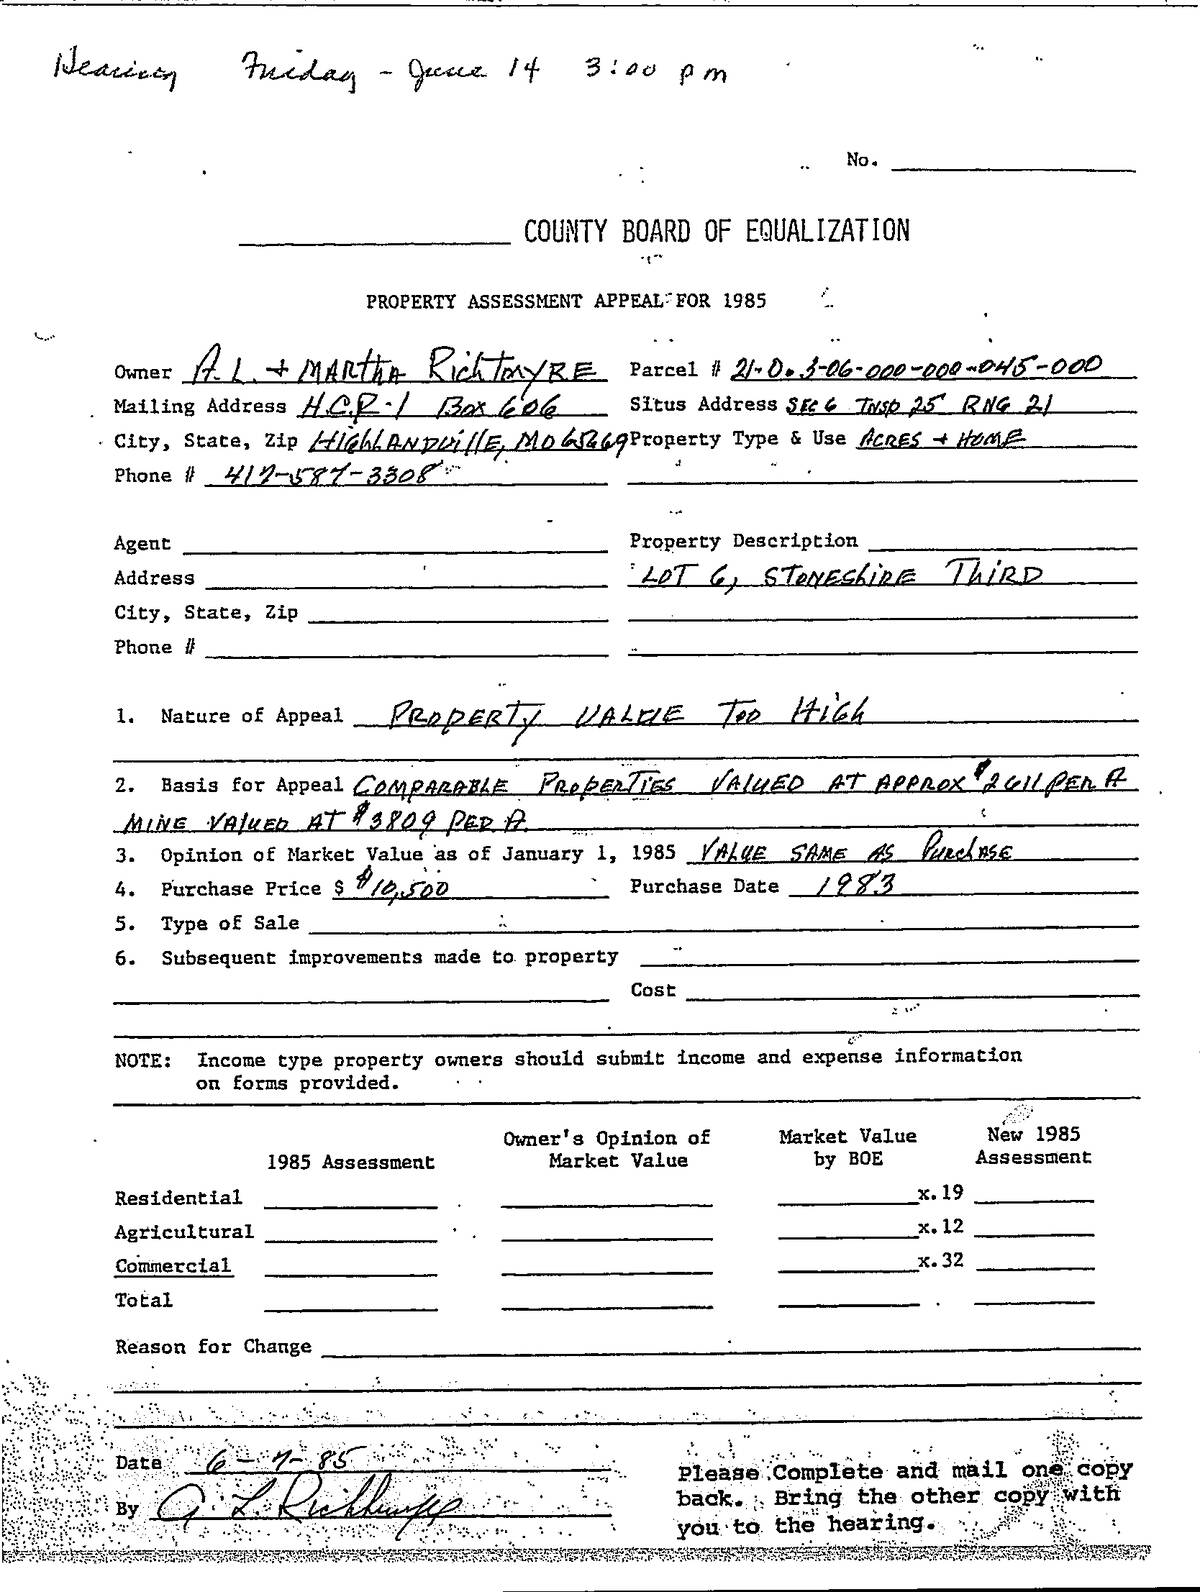 Hearing Friday - June 14 3:00 pm
No.
COUNTY BOARD OF EQUALIZATION
PROPERTY ASSESSMENT APPEAL FOR 1985
Owner A.L. + MARTHA RICHTMYRE Parcel # 21-0.3-06-000-000-045-000
Mailing Address H.C.R-1 Box 606 Situs Address SEC 6 TNSP 25 RNG 21
City, State, Zip HIGHLANDVILLE, MO 65669 Property Type & Use ACRES + HOME
Phone # 417-587-3308
Agent Property Description
Address LOT 6, STONESHIRE THIRD
City, State, Zip
Phone #
1. Nature of Appeal PROPERTY VALUE TOO HIGH
2. Basis for Appeal COMPARABLE PROPERTIES VALUED AT APPROX $2611 PER A
MINE VALUED AT $3809 PER A.
3. Opinion of Market Value as of January 1, 1985 VALUE SAME AS PURCHASE
4. Purchase Price $ $10,500 Purchase Date 1983
5. Type of Sale
6. Subsequent improvements made to property
Cost
NOTE: Income type property owners should submit income and expense information
on forms provided.
Owner's Opinion of Market Value New 1985
1985 Assessment Market Value by BOE Assessment
Residential x.19
Agricultural x.12
Commercial x.32
Total
Reason for Change
Date 6-7-85
By A L Richtmyre
Please Complete and mail one copy
back. Bring the other copy with
you to the hearing.